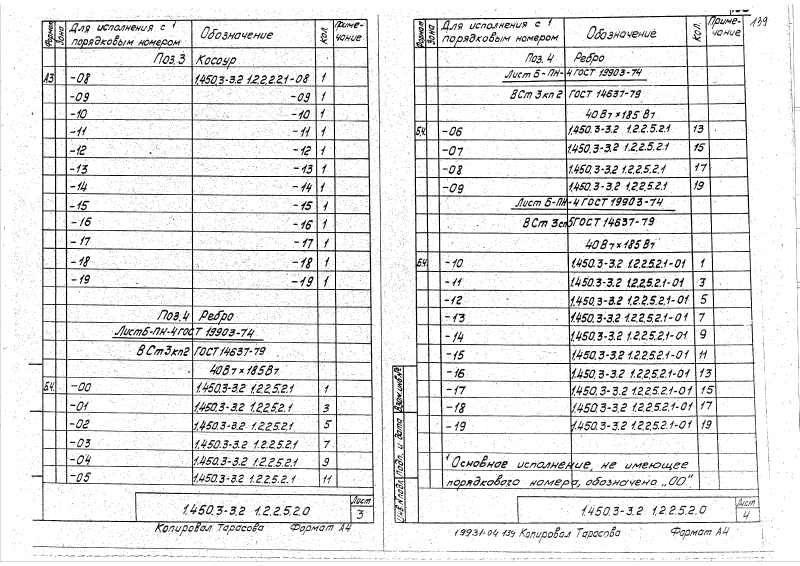 Формат Зона Для исполнения с порядковым номером¹ Обозначение Кол. Примечание
Поз. 3 Косоур
А3 -08 1.450.3-3.2 1.2.2.2.2.1-08 1
-09 -09 1
-10 -10 1
-11 -11 1
-12 -12 1
-13 -13 1
-14 -14 1
-15 -15 1
-16 -16 1
-17 -17 1
-18 -18 1
-19 -19 1
Поз. 4 Ребро
Лист Б-ПН-4 ГОСТ 19903-74
ВСт3кп2 ГОСТ 14637-79
40Вт×185Вт
БЧ. -00 1.450.3-3.2 1.2.2.5.2.1 1
-01 1.450.3-3.2 1.2.2.5.2.1 3
-02 1.450.3-3.2 1.2.2.5.2.1 5
-03 1.450.3-3.2 1.2.2.5.2.1 7
-04 1.450.3-3.2 1.2.2.5.2.1 9
-05 1.450.3-3.2 1.2.2.5.2.1 11
1.450.3-3.2 1.2.2.5.2.0 Лист 3
Копировал Тарасова Формат А4
139
Формат Зона Для исполнения с порядковым номером¹ Обозначение Кол. Примечание
Поз. 4 Ребро
Лист Б-ПН-4 ГОСТ 19903-74
ВСт3кп2 ГОСТ 14637-79
40Вт×185Вт
БЧ. -06 1.450.3-3.2 1.2.2.5.2.1 13
-07 1.450.3-3.2 1.2.2.5.2.1 15
-08 1.450.3-3.2 1.2.2.5.2.1 17
-09 1.450.3-3.2 1.2.2.5.2.1 19
Лист Б-ПН-4 ГОСТ 19903-74
ВСт3сп5 ГОСТ 14637-79
40Вт×185Вт
БЧ. -10 1.450.3-3.2 1.2.2.5.2.1-01 1
-11 1.450.3-3.2 1.2.2.5.2.1-01 3
-12 1.450.3-3.2 1.2.2.5.2.1-01 5
-13 1.450.3-3.2 1.2.2.5.2.1-01 7
-14 1.450.3-3.2 1.2.2.5.2.1-01 9
-15 1.450.3-3.2 1.2.2.5.2.1-01 11
-16 1.450.3-3.2 1.2.2.5.2.1-01 13
-17 1.450.3-3.2 1.2.2.5.2.1-01 15
-18 1.450.3-3.2 1.2.2.5.2.1-01 17
-19 1.450.3-3.2 1.2.2.5.2.1-01 19
¹ Основное исполнение, не имеющее
порядкового номера, обозначено „00".
Инв.№подл. Подп. и дата Взам.инв.№
1.450.3-3.2 1.2.2.5.2.0 Лист 4
19931-04 139 Копировал Тарасова Формат А4